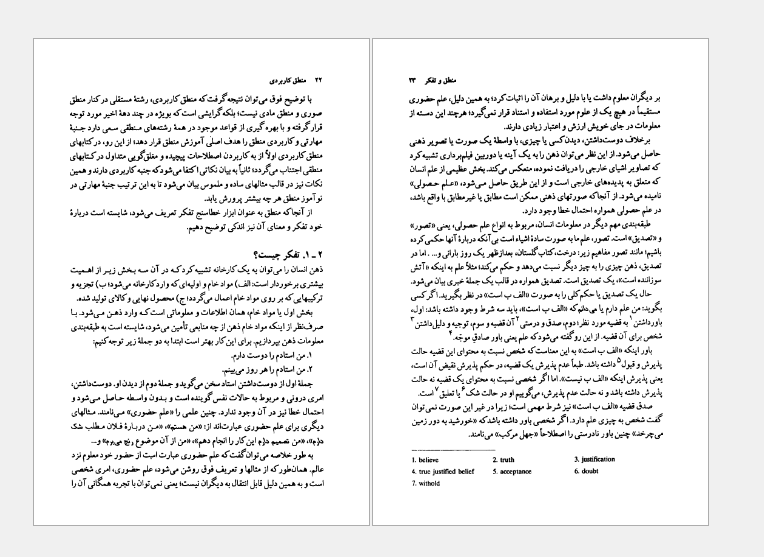 ۲۲ منطق کاربردی
با توضیح فوق می‌توان نتیجه گرفت که منطق کاربردی، رشتهٔ مستقلی در کنار منطق
صوری و منطق مادی نیست؛ بلکه گرایشی است که بویژه در چند دههٔ اخیر مورد توجه
قرار گرفته و با بهره‌گیری از قواعد موجود در همهٔ رشته‌های منطقی سعی دارد جنبهٔ
مهارتی و کاربردی منطق را هدف اصلی آموزش منطق قرار دهد؛ از این رو، در کتابهای
منطق کاربردی اولاً از به کار بردن اصطلاحات پیچیده و مغلق‌گویی متداول در کتابهای
منطقی اجتناب می‌گردد؛ ثانیاً به بیان نکاتی اکتفا می‌شود که جنبه کاربردی دارند و همین
نکات نیز در قالب مثالهای ساده و ملموس بیان می‌شود تا به این ترتیب جنبهٔ مهارتی در
نوآموز منطق هر چه بیشتر پرورش یابد.
از آنجا که منطق به عنوان ابزار خطاسنج تفکر تعریف می‌شود، شایسته است دربارهٔ
خود تفکر و معنای آن نیز اندکی توضیح دهیم.
۲ ـ ۱. تفکر چیست؟
ذهن انسان را می‌توان به یک کارخانه تشبیه کرد که در آن سه بخش زیر از اهمیت
بیشتری برخوردار است: الف) مواد خام و اولیه‌ای که وارد کارخانه می‌شود؛ ب) تجزیه و
ترکیبهایی که بر روی مواد خام اعمال می‌گردد؛ ج) محصول نهایی و کالای تولید شده.
بخش اول یا مواد خام، همان اطلاعات و معلوماتی است که وارد ذهن می‌شود. با
صرف‌نظر از اینکه مواد خام ذهن از چه منابعی تأمین می‌شود، شایسته است به طبقه‌بندی
معلومات ذهن بپردازیم. برای این کار بهتر است ابتدا به دو جملهٔ زیر توجه کنیم:
۱. من استادم را دوست دارم.
۲. من استادم را هر روز می‌بینم.
جملهٔ اول از دوست‌داشتن استاد سخن می‌گوید و جملهٔ دوم از دیدن او. دوست‌داشتن،
امری درونی و مربوط به حالات نفس گوینده است و بدون واسطه حاصل می‌شود و
احتمال خطا نیز در آن وجود ندارد. چنین علمی را «علم حضوری» می‌نامند. مثالهای
دیگری برای علم حضوری عبارت‌اند از: «من هستم»، «من دربارهٔ فلان مطلب شک
دارم»، «من تصمیم دارم این کار را انجام دهم»، «من از آن موضوع رنج می‌برم» و...
به طور خلاصه می‌توان گفت که علم حضوری عبارت است از حضور خود معلوم نزد
عالم. همان‌طور که از مثالها و تعریف فوق روشن می‌شود، علم حضوری، امری شخصی
است و به همین دلیل قابل انتقال به دیگران نیست؛ یعنی نمی‌توان با تجربه همگانی آن را
منطق و تفکر ۲۳
بر دیگران معلوم داشت یا با دلیل و برهان آن را اثبات کرد؛ به همین دلیل، علم حضوری
مستقیماً در هیچ یک از علوم مورد استفاده و استناد قرار نمی‌گیرد؛ هرچند این دسته از
معلومات در جای خویش ارزش و اعتبار زیادی دارند.
برخلاف دوست‌داشتن، دیدن کسی یا چیزی، با واسطهٔ یک صورت یا تصویر ذهنی
حاصل می‌شود. از این نظر می‌توان ذهن را به یک آینه یا دوربین فیلم‌برداری تشبیه کرد
که تصاویر اشیای خارجی را دریافت نموده، منعکس می‌کند. بخش عظیمی از علم انسان
که متعلق به پدیده‌های خارجی است و از این طریق حاصل می‌شود، «علم حصولی»
نامیده می‌شود. از آنجا که صورتهای ذهنی ممکن است مطابق یا غیرمطابق با واقع باشد،
در علم حصولی همواره احتمال خطا وجود دارد.
طبقه‌بندی مهم دیگر در معلومات انسان، مربوط به انواع علم حصولی، یعنی «تصور»
و «تصدیق» است. تصور، علم ما به صورت سادهٔ اشیاء است بی‌آنکه دربارهٔ آنها حکمی کرده
باشیم؛ مانند تصور مفاهیم زیر: درخت، کتاب گلستان، بعدازظهر یک روز بارانی و.... اما در
تصدیق، ذهن چیزی را به چیز دیگر نسبت می‌دهد و حکم می‌کند؛ مثلاً علم به اینکه «آتش
سوزاننده است»، یک تصدیق است. تصدیق همواره در قالب یک جملهٔ خبری بیان می‌شود.
حال یک تصدیق یا حکم کلی را به صورت «الف ب است» در نظر بگیرید. اگر کسی
بگوید: من علم دارم یا می‌دانم که «الف ب است»، باید سه شرط وجود داشته باشد: اول،
باور داشتن¹ به قضیه مورد نظر؛ دوم، صدق و درستی² آن قضیه و سوم، توجیه و دلیل داشتن³
شخص برای آن قضیه. از این رو گفته می‌شود که علم یعنی باور صادق موجّه.⁴
باور اینکه «الف ب است» به این معناست که شخص نسبت به محتوای این قضیه حالت
پذیرش و قبول⁵ داشته باشد. طبعاً عدم پذیرش یک قضیه، در حکم پذیرش نقیض آن است،
یعنی پذیرش اینکه «الف ب نیست». اما اگر شخصی نسبت به محتوای یک قضیه نه حالت
پذیرش داشته باشد و نه حالت عدم پذیرش، می‌گوییم او در حالت شک⁶ یا تعلیق⁷ است.
صدق قضیه «الف ب است» نیز شرط مهمی است؛ زیرا در غیر این صورت نمی‌توان
گفت شخص به چیزی علم دارد. اگر شخصی باور داشته باشد که «خورشید به دور زمین
می‌چرخد» چنین باور نادرستی را اصطلاحاً «جهل مرکب» می‌نامند.
1. believe 2. truth 3. justification
4. true justified belief 5. acceptance 6. doubt
7. withold